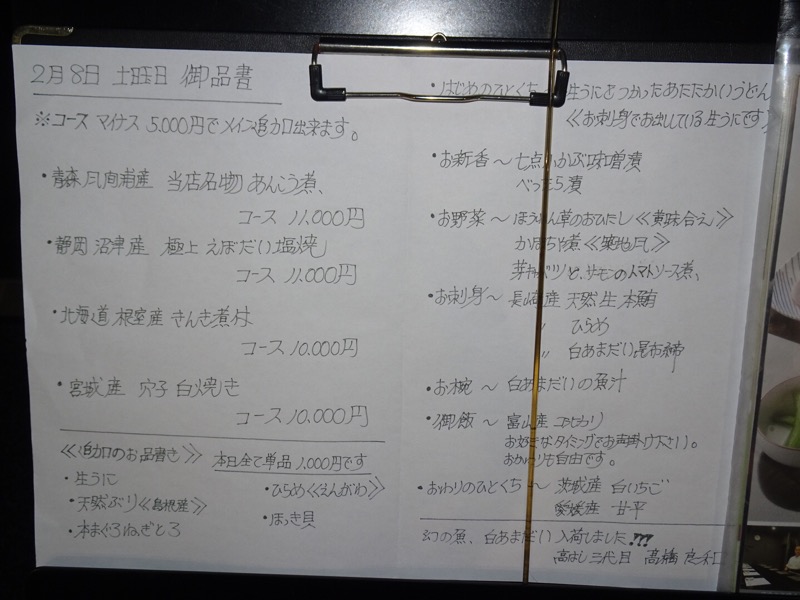 2月8日 土曜日 御品書
※コース マイナス 5.000円でメイン追加出来ます。
・青森 風間浦産 当店名物 あんこう煮、
コース 11.000円
・静岡 沼津産 極上 えぼだい塩焼
コース 11.000円
・北海道 根室産 きんき煮付
コース 10.000円
・宮城産 穴子 白焼き
コース 10.000円
≪追加のお品書き≫ 本日全て単品 1.000円です
・生うに
・天然ぶり≪島根産≫
・本まぐろねぎとろ
・ひらめ≪えんがわ≫
・ほっき貝
・はじめのひとくち 生うにをつかったあたたかいうどん
≪お刺身でお出ししている生うにです
・お新香〜 七点 小かぶ味噌漬
べったら漬
・お野菜〜 ほうれん草のおひたし≪黄味合え≫
かぼちゃ煮≪築地風≫
芽キャベツと、サーモンのトマトソース煮、
・お刺身〜 長崎産 天然 生 本鮪
〃 ひらめ
〃 白あまだい昆布締
・お椀 〜 白あまだいの魚汁
・御飯〜 富山産 コシヒカリ
お好きなタイミングでお声掛け下さい。
おかわりも自由です。
・おわりのひとくち〜 茨城産 白いちご
愛媛産 甘平
幻の魚、白あまだい 入荷しました!!!
高はし三代目 高橋